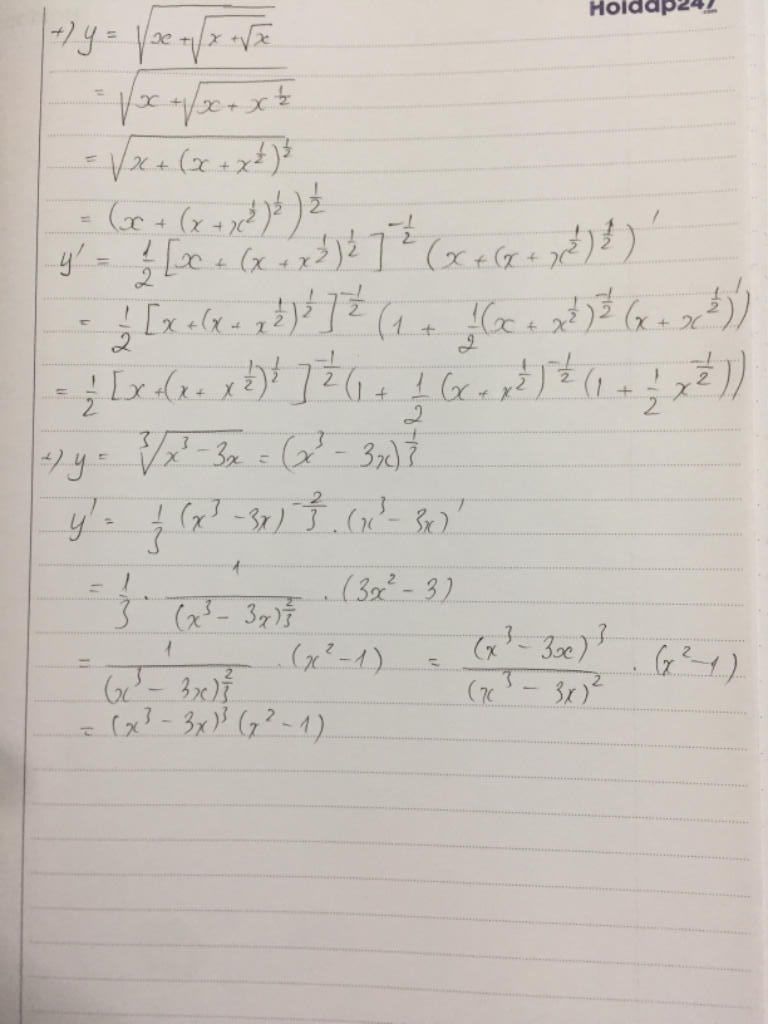 Hoidap247
.com
+) y = √(x + √(x + √x))
= √(x + √(x + x^(1/2)))
= √(x + (x + x^(1/2))^(1/2))
= (x + (x + x^(1/2))^(1/2))^(1/2)
y' = 1/2 [x + (x + x^(1/2))^(1/2)]^(-1/2) (x + (x + x^(1/2))^(1/2))'
= 1/2 [x + (x + x^(1/2))^(1/2)]^(-1/2) (1 + 1/2 (x + x^(1/2))^(-1/2) (x + x^(1/2))')
= 1/2 [x + (x + x^(1/2))^(1/2)]^(-1/2) (1 + 1/2 (x + x^(1/2))^(-1/2) (1 + 1/2 x^(-1/2)))
+) y = ∛(x³ - 3x) = (x³ - 3x)^(1/3)
y' = 1/3 (x³ - 3x)^(-2/3) . (x³ - 3x)'
= 1/3 . 1/(x³ - 3x)^(2/3) . (3x² - 3)
= 1/(x³ - 3x)^(2/3) . (x² - 1) = (x³ - 3x)³/(x³ - 3x)² . (x² - 1)
= (x³ - 3x)³ (x² - 1)